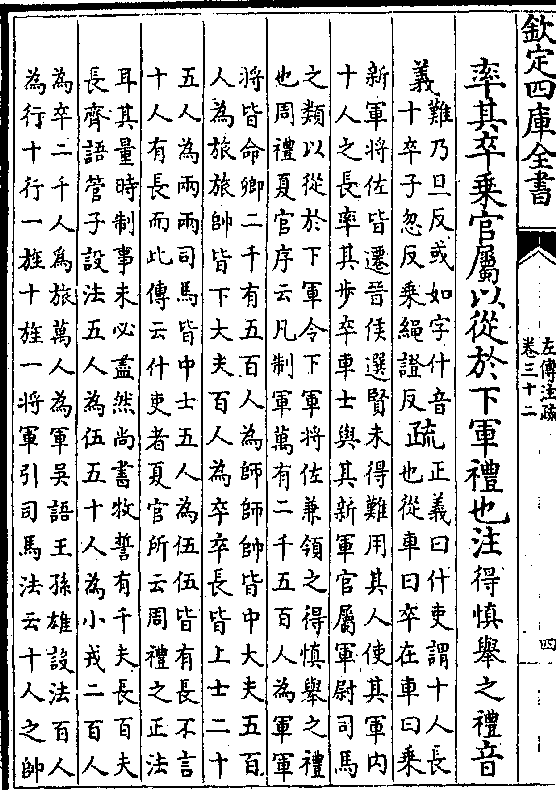 欽定四庫全書
左傳注疏
卷三十二
四
率其卒乘官屬以從於下軍禮也注得慎舉之禮音
義難乃旦反或如字什音
十卒子忽反乘繩證反
疏正義曰什吏謂十人長
也從車曰卒在車曰乘
新軍將佐皆遷晉侯選賢未得難用其人使其軍內
十人之長率其步卒車士與其新軍官屬軍尉司馬
之類以從於下軍令下軍將佐兼領之得慎舉之禮
也周禮夏官序云凡制軍萬有二千五百人為軍軍
將皆命卿二千有五百人為師師帥皆中大夫五百
人為旅旅帥皆下大夫百人為卒卒長皆上士二十
五人為兩兩司馬皆中士五人為伍伍皆有長不言
十人有長而此傳云什吏者夏官所云周禮之正法
耳其量時制事未必盡然尚書牧誓有千夫長百夫
長齊語管子設法五人為伍五十人為小戎二百人
為卒二千人爲旅萬人為軍吳語王孫雄設法百人
為行十行一旌十旌一將軍引司馬法云十人之帥